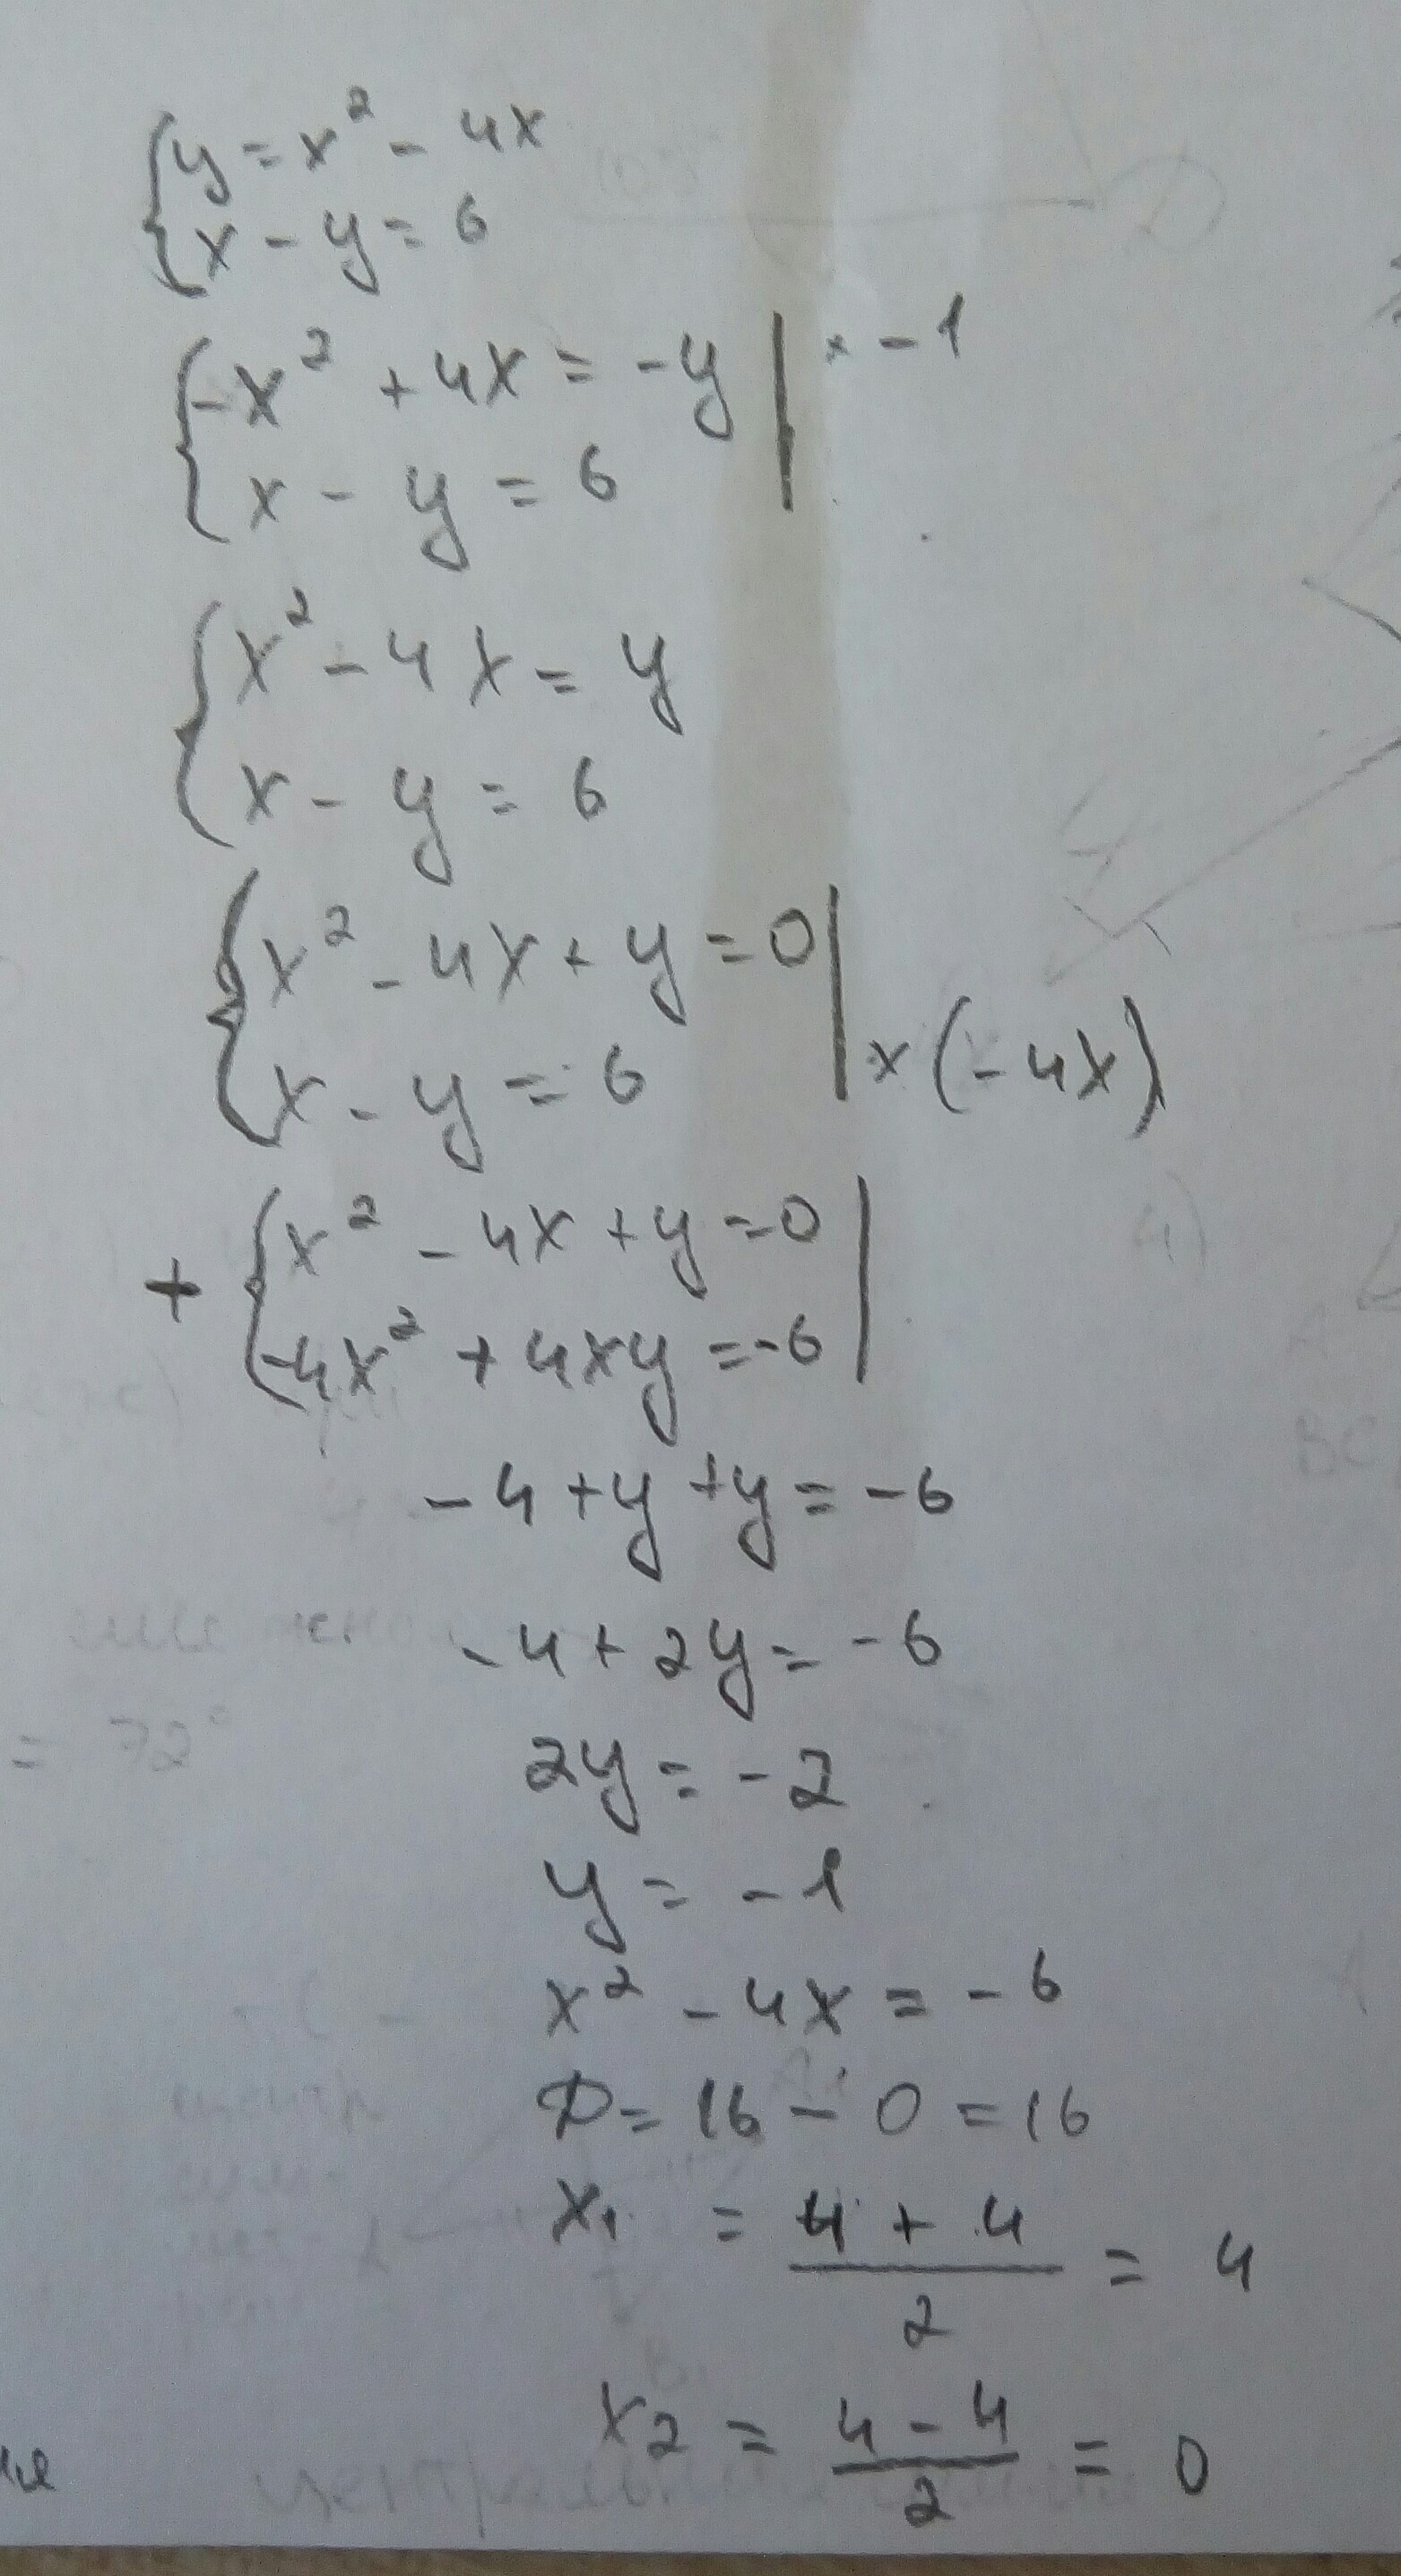 {y = x² - 4x
{x - y = 6
{-x² + 4x = -y | × -1
{x - y = 6
{x² - 4x = y
{x - y = 6
{x² - 4x + y = 0 |
{x - y = 6 | × (-4x)
+ {x² - 4x + y = 0 |
{-4x² + 4xy = -6 |
-4 + y + y = -6
-4 + 2y = -6
2y = -2
y = -1
x² - 4x = -6
D = 16 - 0 = 16
x₁ = (4 + 4)/2 = 4
x₂ = (4 - 4)/2 = 0
= 72°
4)
A
BC